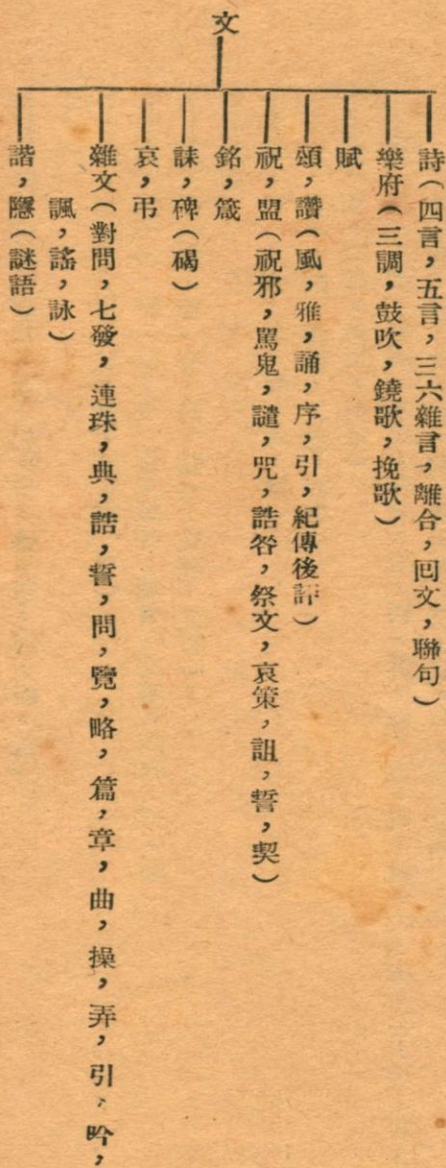 文
詩（四言，五言，三六雜言，離合，回文，聯句）
樂府（三調，鼓吹，鐃歌，挽歌）
賦
頌，讚（風，雅，誦，序，引，紀傳後評）
祝，盟（祝邪，罵鬼，譴，咒，誥咎，祭文，哀策，詛，誓，契）
銘，箴
誄，碑（碣）
哀，弔
雜文（對問，七發，連珠，典，誥，誓，問，覽，略，篇，章，曲，操，弄，引，吟，
諷，謠，詠）
諧，隱（謎語）